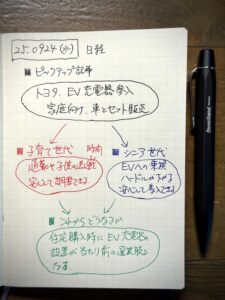 250924(水) 日経
■ピックアップ記事
トヨタ、EV充電器参入
家庭向け、車とセット販売
■子育て世代
通勤や子供の送迎
安心して
■シニア世代
EVへの
ハードルが下がる
安心して
■これからどうなるか
住宅購入時にEV充電器の
設置が当たり前の選択肢と
なる